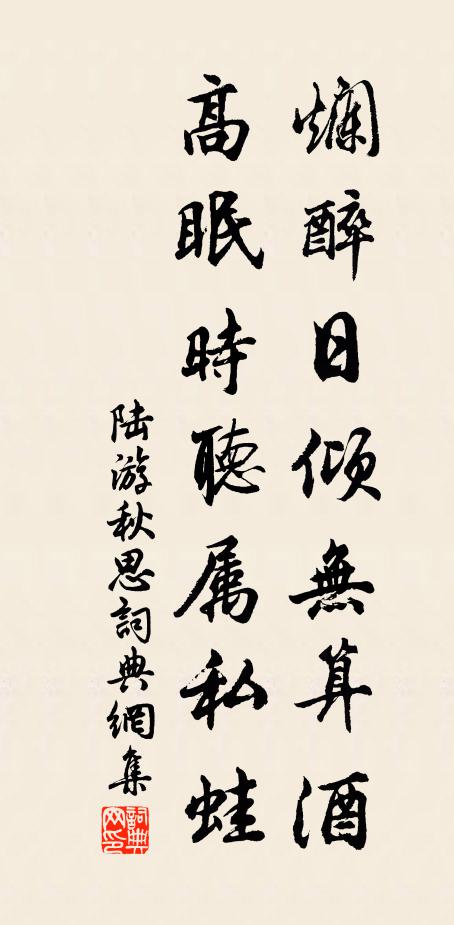 爛醉日傾無算酒
高眠時聽属私蛙
陆游秋思詞典網集
詞典网印